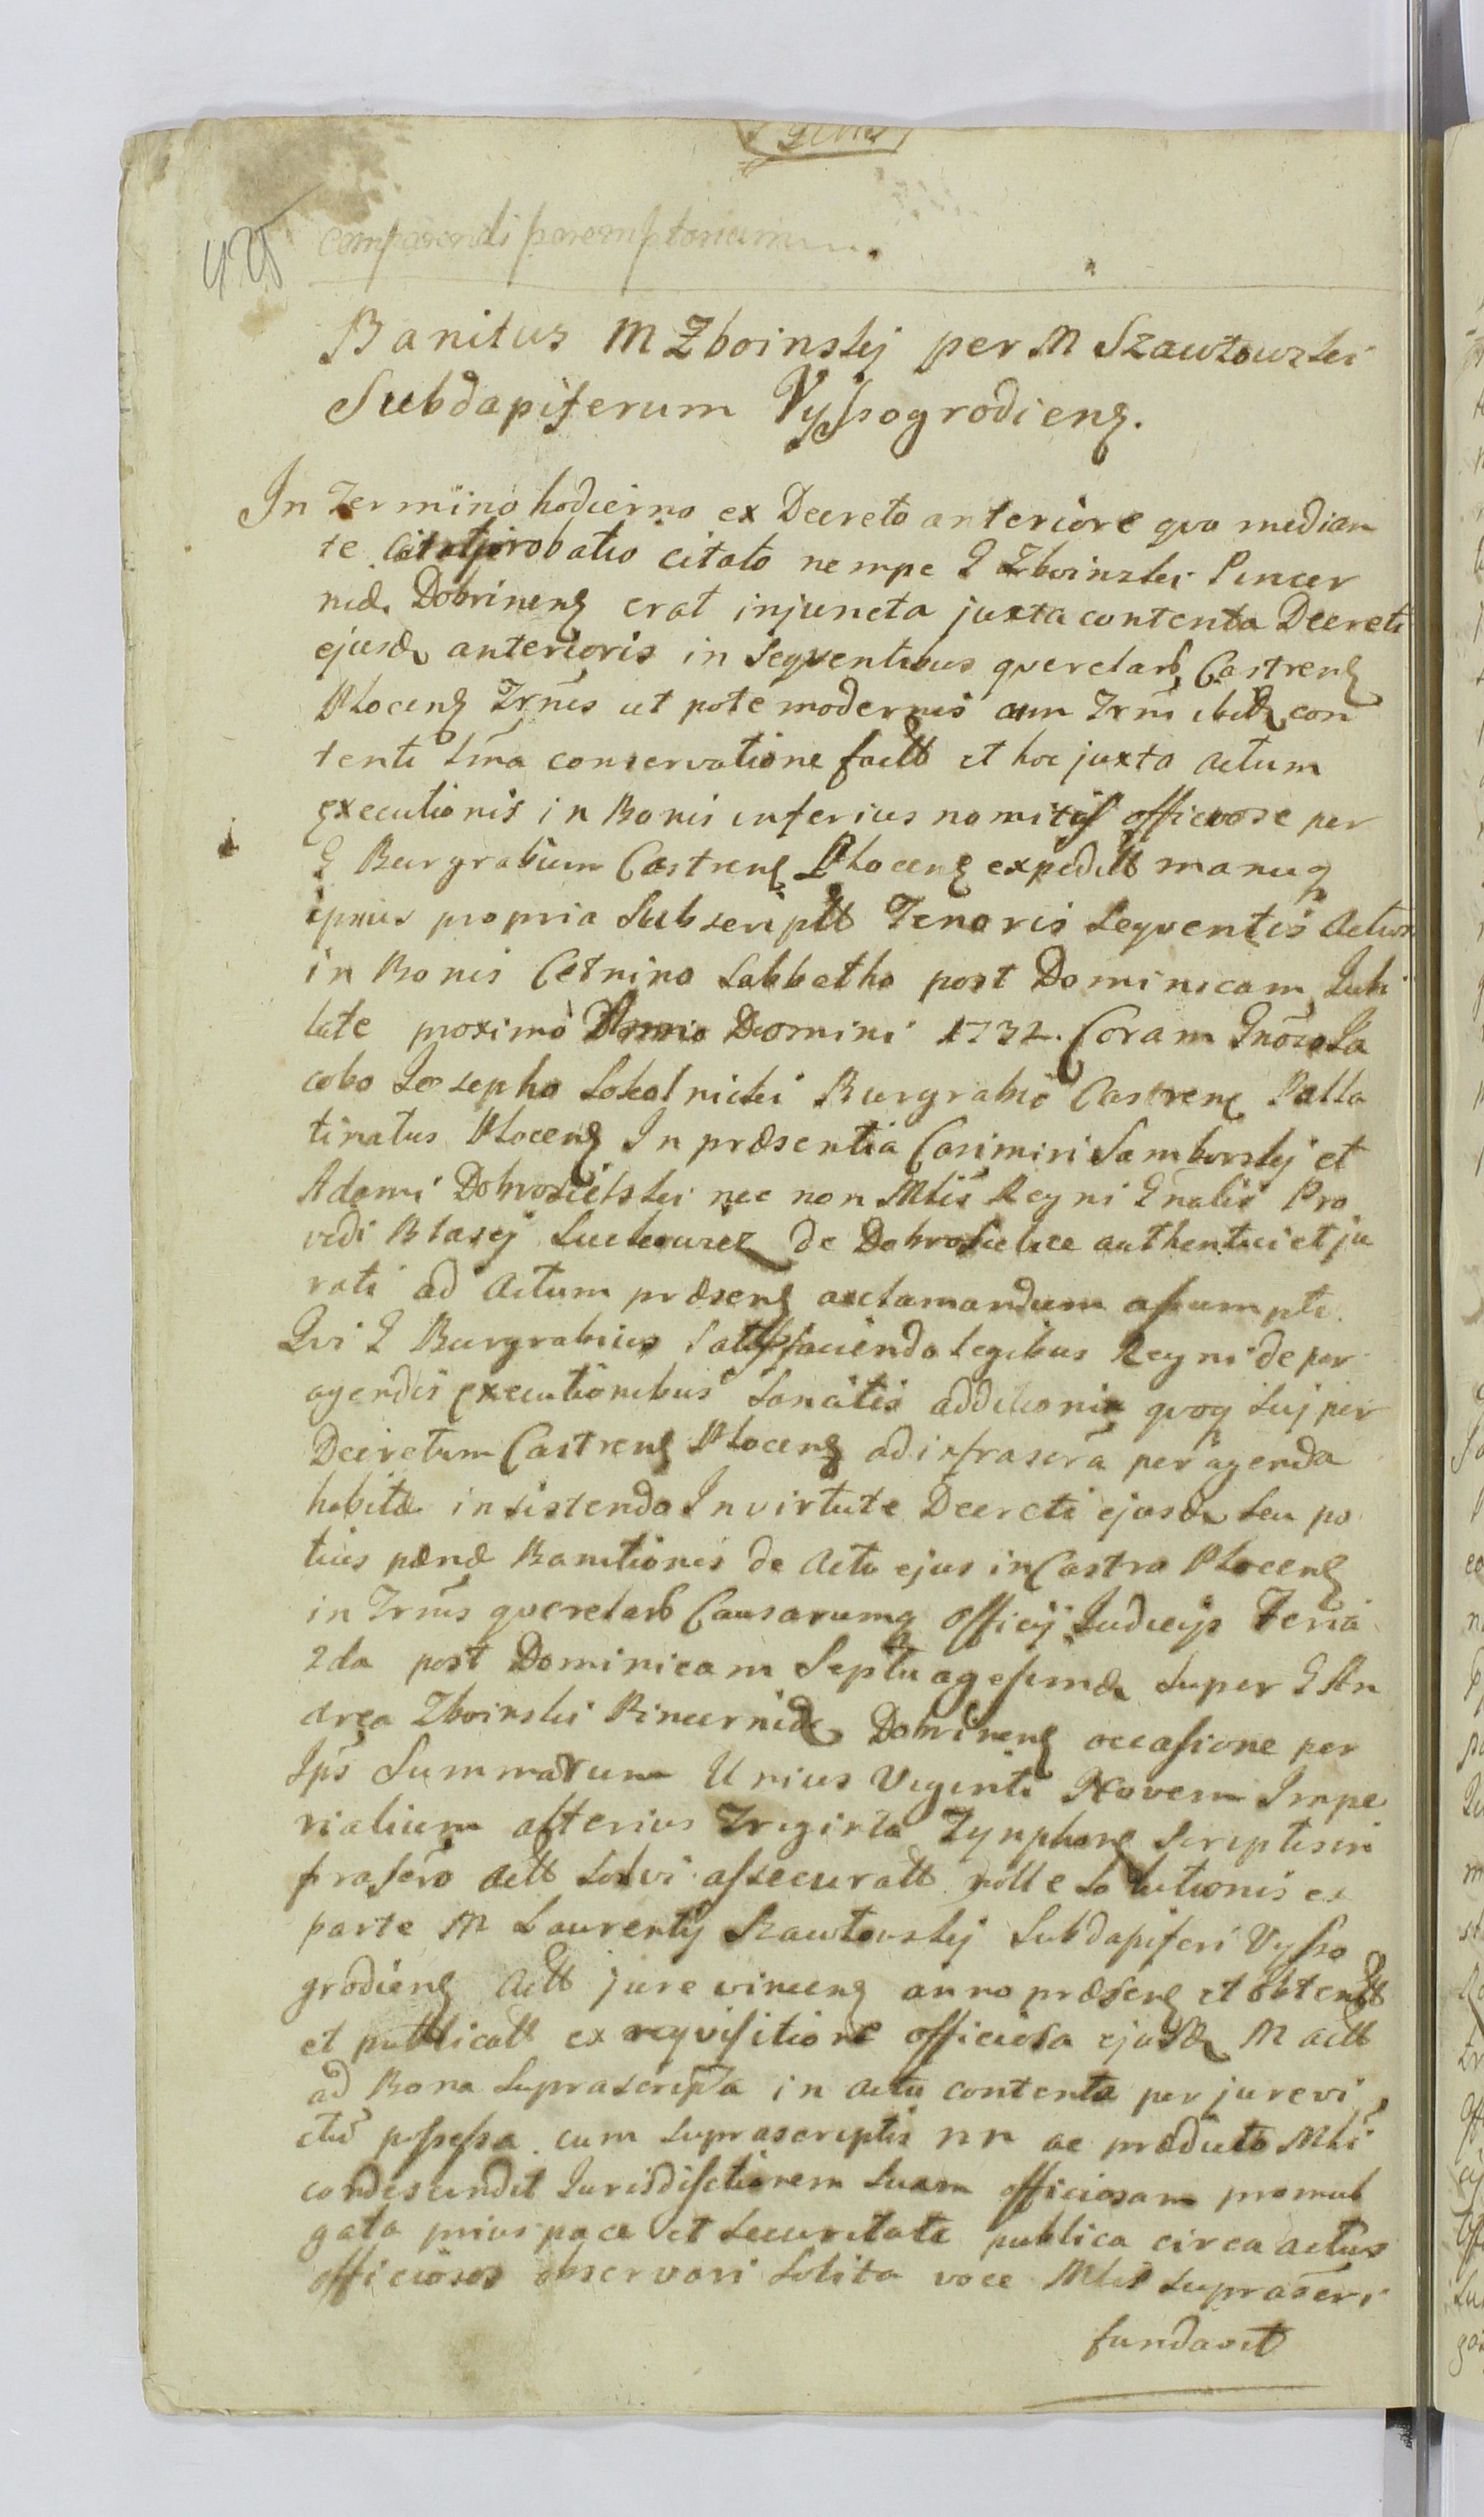 425
comparendi peremptorium
Banitus M Zboinskj per M Szawłowski
Subdapiferum Vyssogrodieng.
In Termino hodierno ex Decreto anteriore quo median
te comprobatio citato nempe G Zboinski Pincer
næ Dobrineng erat injuncta juxta contenta Decreti
ejusd anterioris in Sequentibus querelarb Castreng
Ploceng Trnis ut pote modernis cum Trni ibid con
tenti conservatione factt et hoc juxta actum
Executionis in Bonis inferius nomitis officiose per
G Burgrabium Castreng Ploceng expeditt manuq
ipsius propria Subscriptt Tenoris Sequentis Actum
in Bonis Cetnino Sabbatho post Dominicam Jubi
late proximo Anno Domini 1732. Coram Gnoso Ja
cobo Josepho Sokolnicki Burgrabio Castreng Palla
tinatus Ploceng In præsentia Casimiri Samborskj et
Adami Dobrosielski nec non Mlis Regni Gnalis Pro
vidi Blasej de Dobrosielice authentici et ju
rati ad Actum præseng acclamandum assumpti.
Qui G Burgrabius Satisfaciendo legibus Regni de per
agendis executionibus Sancitis additionis quoq Suj per
Decretum Castreng Ploceng ad infrascra peragenda
habitæ insistendo In virtute Decreti ejusd Seu po
tius pænæ Banitionis de Acto ejus in Castro Ploceng
in Trnis querelarb Causarumq Officij Judicijs Feria
2da post Dominicam Septuagesimæ Super G An
drea Zboinski Pincernid Dobrineng occasione per
Ips Summarum Unius Viginti Novem Impe
rialium alterius Triginta Tynphong Scriptis in
frascro actt Solvi assecuratt nolle Solutionis ex
parte M Laurentij Szawłowskj Subdapiferi Vysso
grodieng actt jure vinceng anno præseng et obtentt
et publicatt ex requisitione officiosa ejusd M actt
ad Bona Suprascripta in actu contenta per jurevi
ctu possessa cum Suprascriptis nn ac præducto Mli
condescendit Jurisdictionem Suam officiosam promul
gata prius pace et Securitate publica circa actus
officiosos observari Solita voce Mlis Suprascri
fundavit